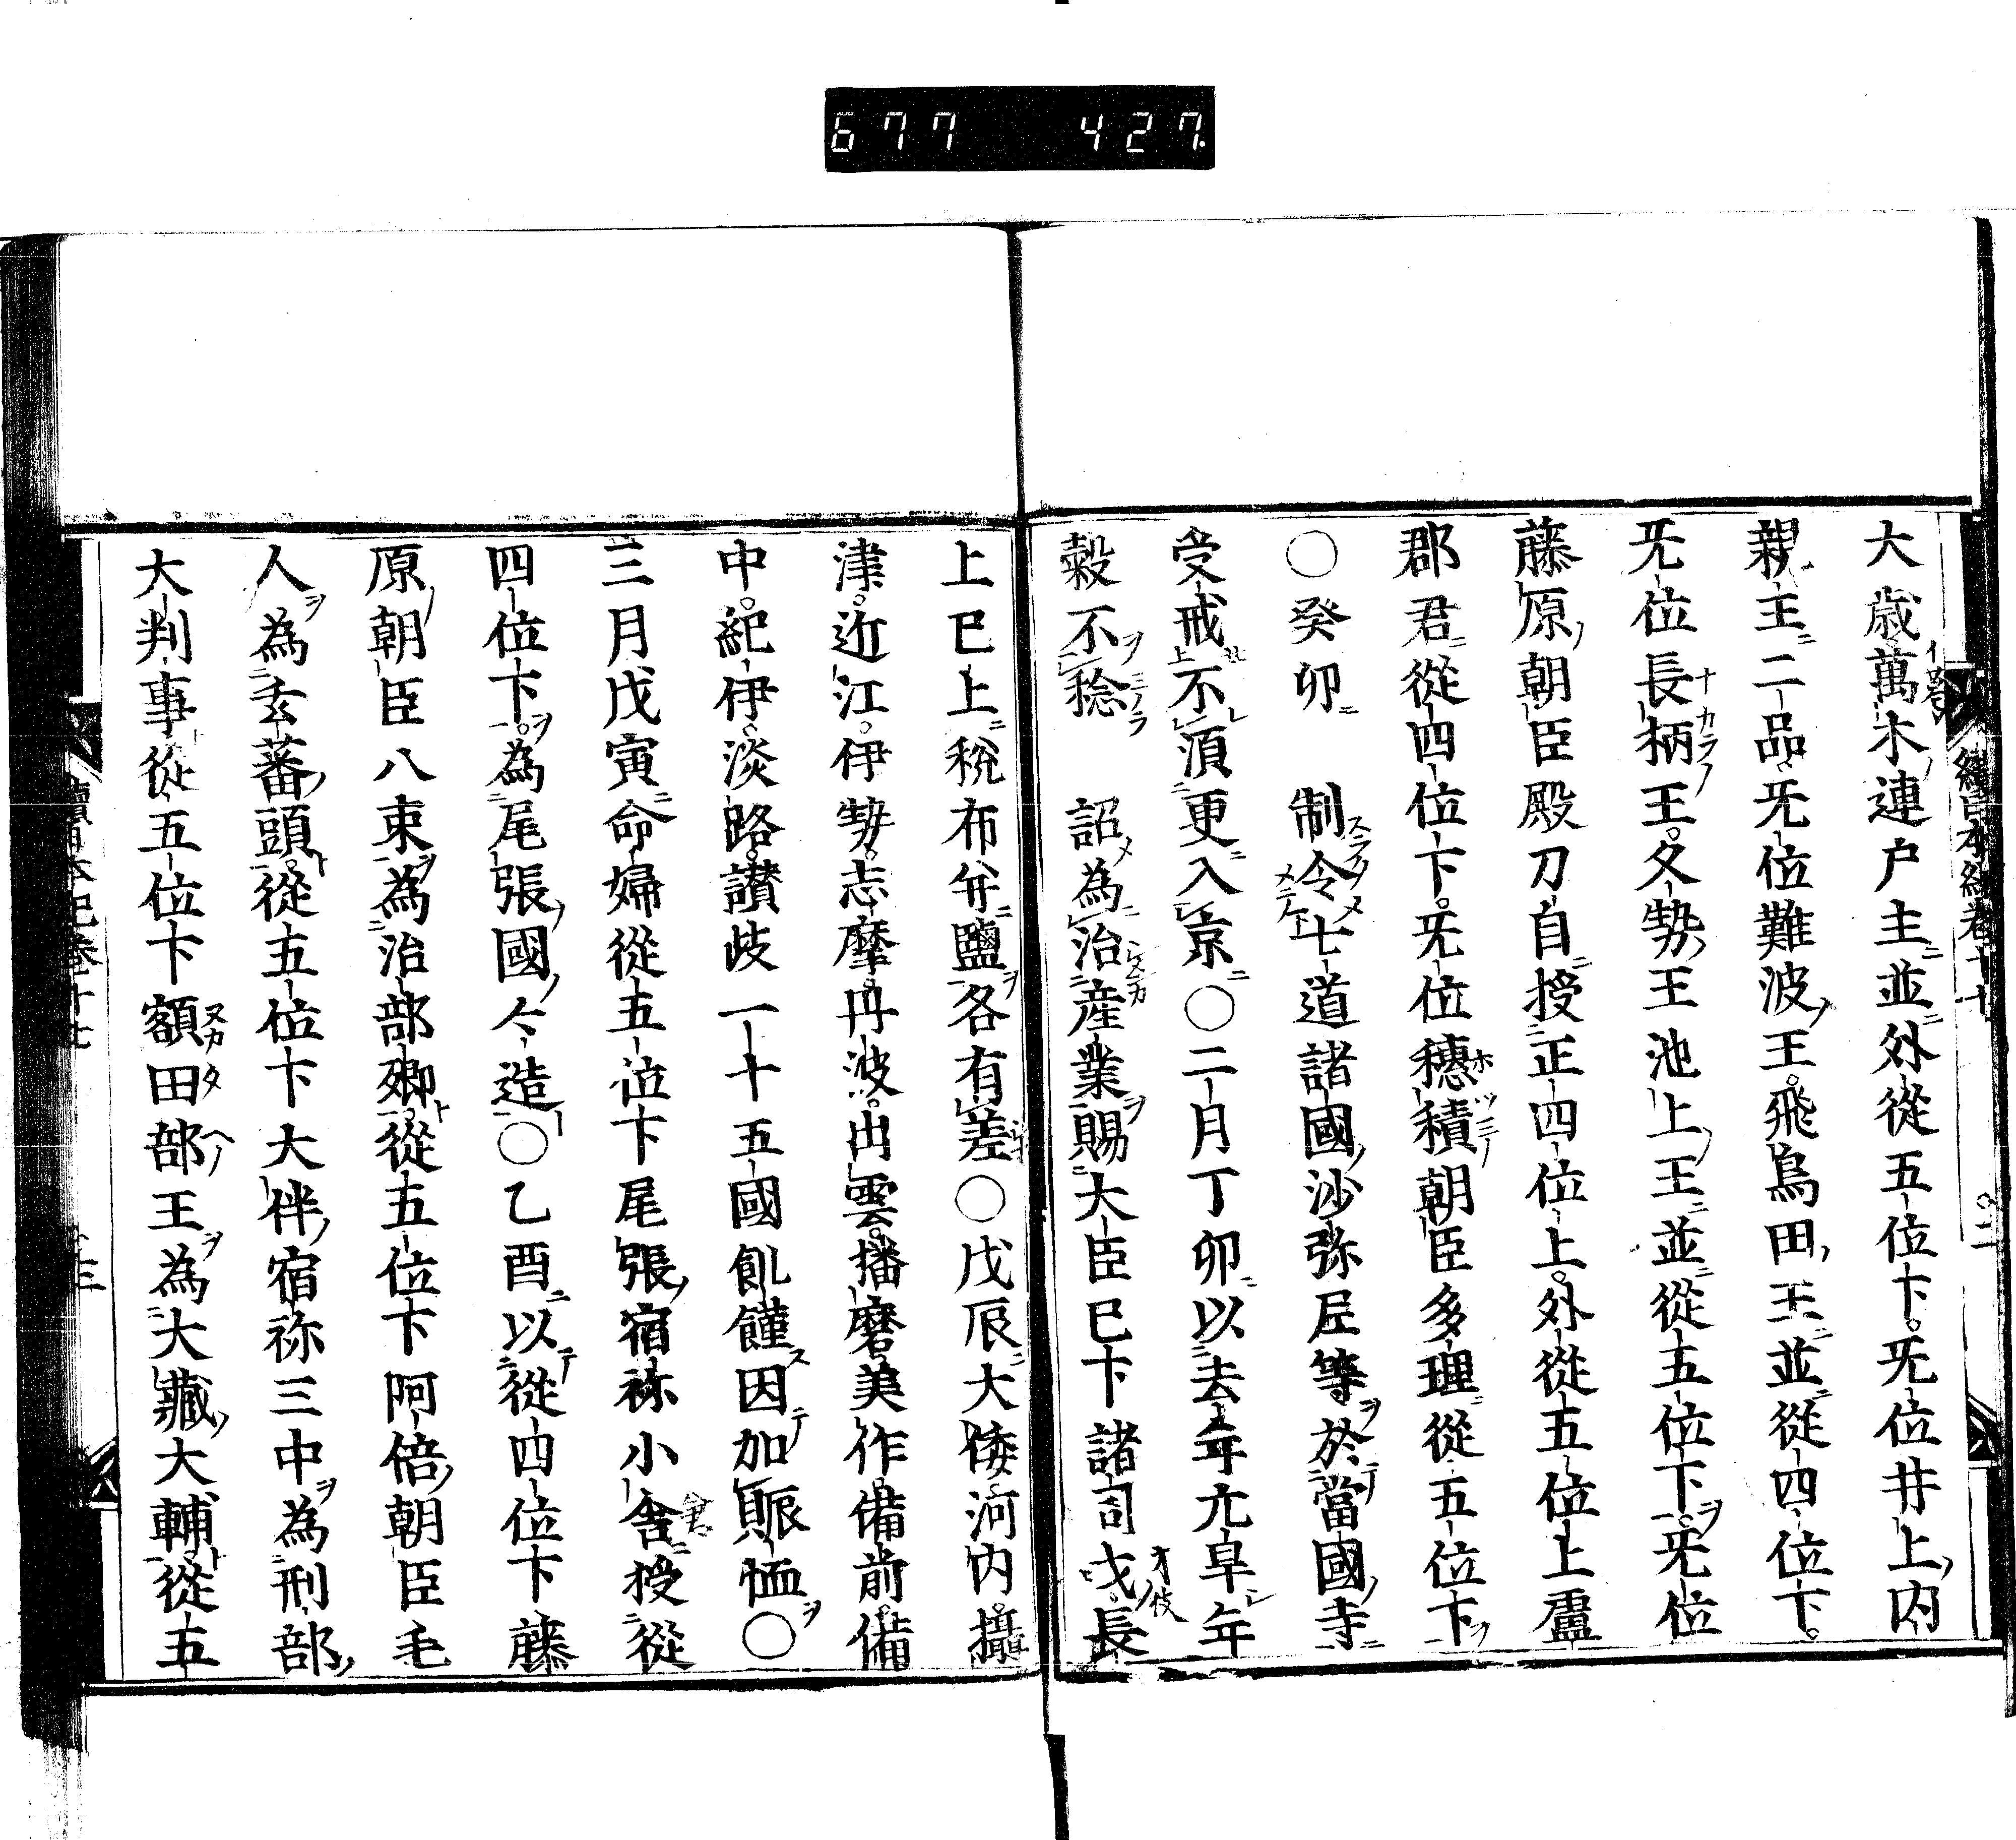 677 427
續日本紀卷十七
二
大歳萬木連户主並外從五位下。旡位井上内
親王二品。旡位難波王。飛鳥田王並從四位下。
旡位長柄王。久勢王池上王並從五位下。旡位
藤原朝臣殿刀自授正四位上。外從五位上盧
郡君從四位下。旡位穗積朝臣多理從五位下
○癸卯　制令七道諸國沙弥尼等於當國寺
受戒不湏更入京○二月丁卯以去年亢旱年
穀不稔　詔為治産業賜大臣已下諸司才伎長
上已上稅布并鹽各有差○戊辰大倭河内攝
津。近江。伊勢。志摩。丹波。出雲。播磨美作備前。備
中。紀伊淡路。讃岐一十五國飢饉因加賑恤○
三月戊寅命婦從五位下尾張宿祢小舎授從
四位下。為尾張國々造○乙酉以從四位下藤
原朝臣八束為治部卿。從五位下阿倍朝臣毛
人為玄蕃頭。從五位下大伴宿祢三中為刑部
大判事從五位下額田部王為大藏大輔從五
續日本紀卷十七
三